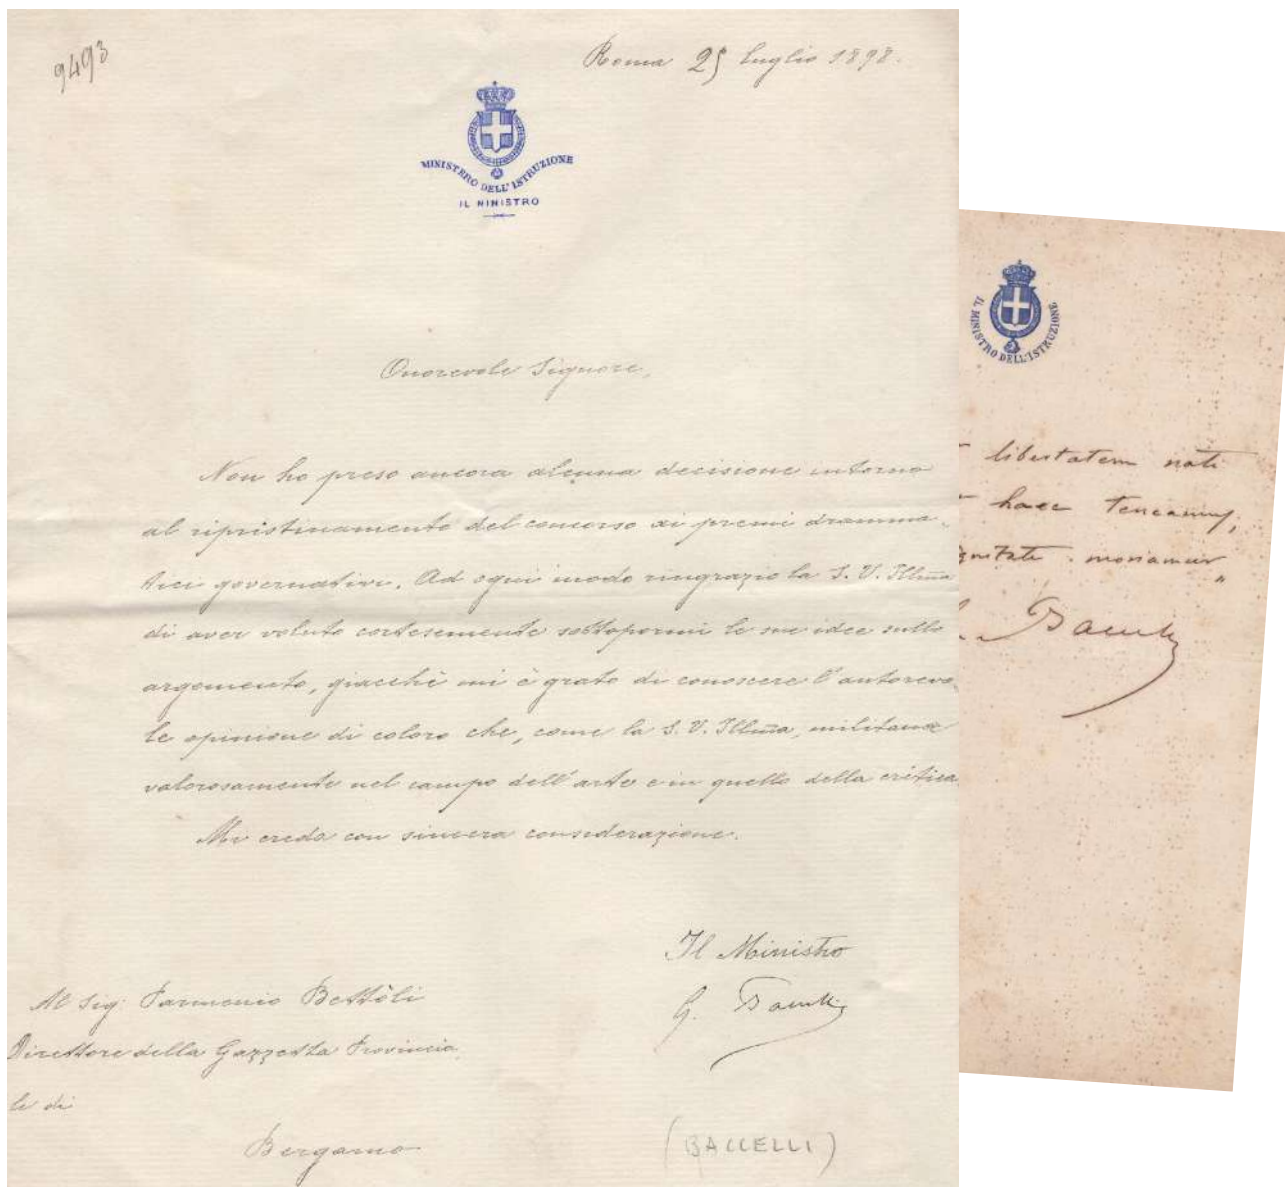 9493
Roma 25 Luglio 1898.
MINISTERO DELL'ISTRUZIONE
IL MINISTRO
Onorevole Signore,
Non ho preso ancora alcuna decisione intorno
al ripristinamento del concorso ai premi dramma-
tici governativi. Ad ogni modo ringrazio la S. V. Illma
di aver voluto cortesemente sottopormi le sue idee sullo
argomento, giacchè mi è grato di conoscere l'autorevo-
le opinione di coloro che, come la S. V. Illma, militano
valorosamente nel campo dell'arte e in quello della critica
Mi creda con sincera considerazione.
Il Ministro
G. Baccelli
Al Sig. Parmenio Bettòli
Direttore della Gazzetta Provincia
le di
Bergamo
(BACCELLI)
IL MINISTRO DELL'ISTRUZIONE
libertatem nati
haec teneamus,
gnitate moriamur"
Baccelli